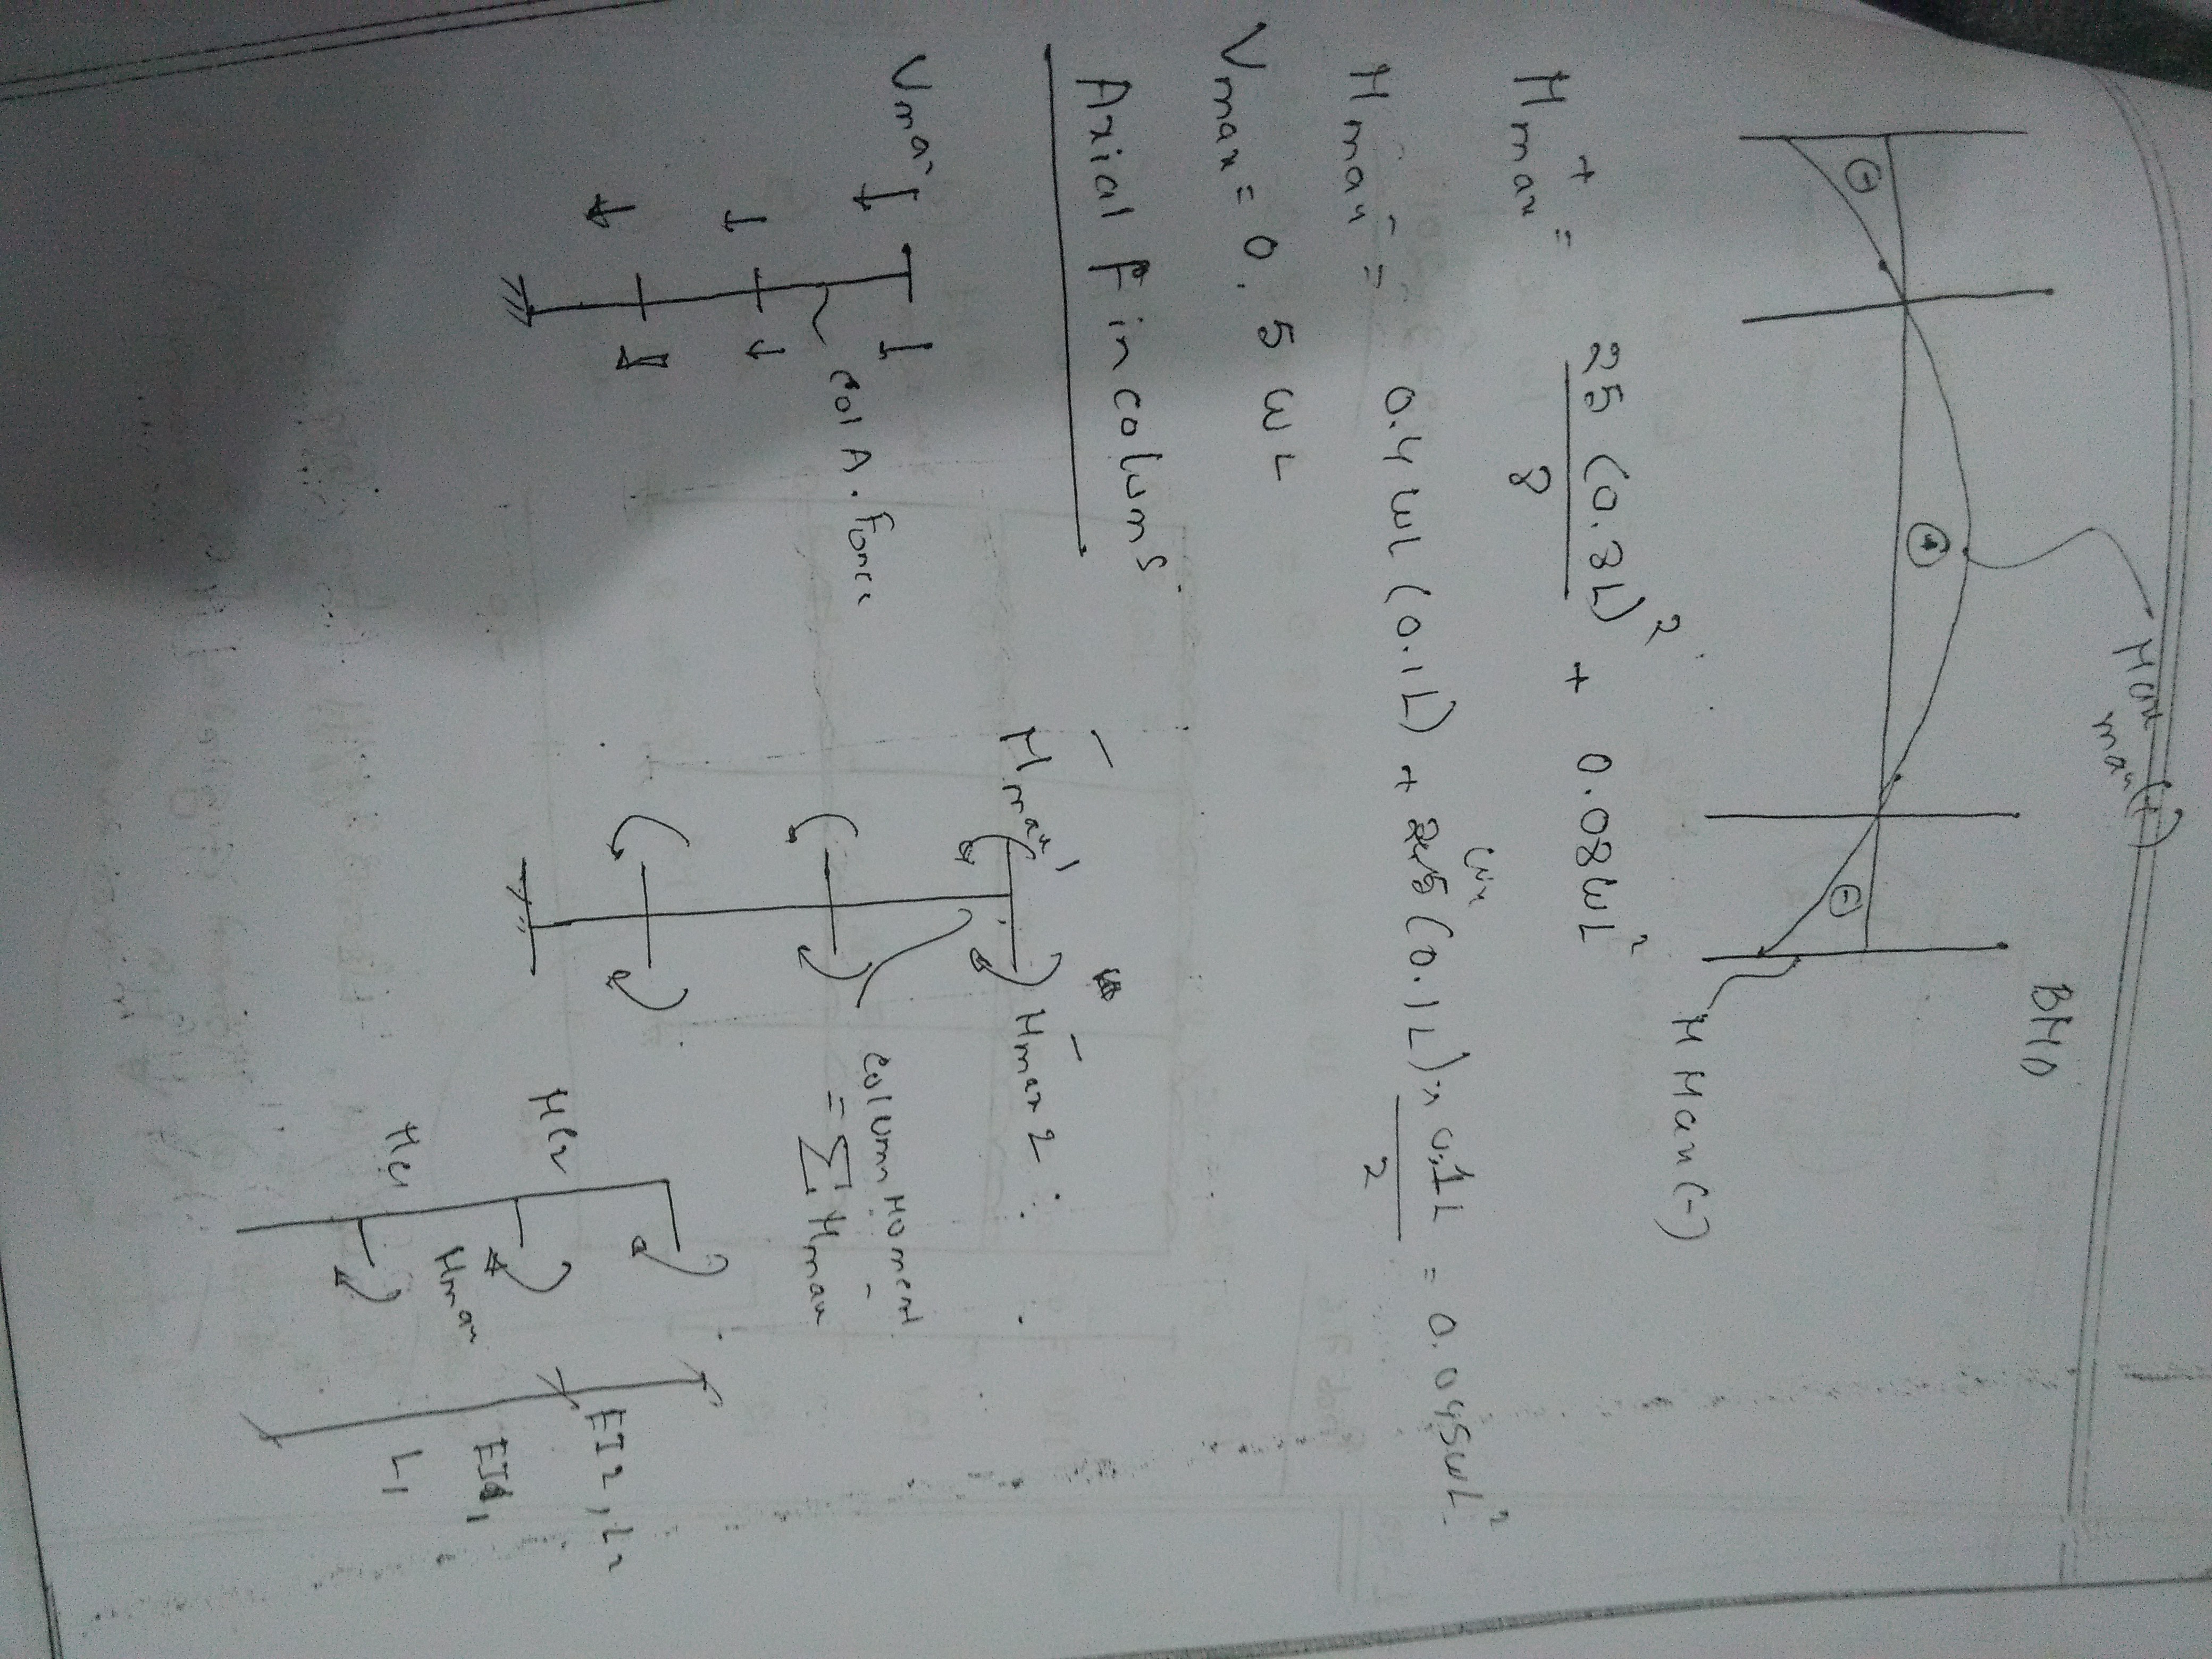 BMD
Mmax(+)
M Max (-)
M⁺max = 25 (0.8L)² / 8 + 0.08ωL²
M⁻max = 0.4ωL (0.1L) + ωx (0.1L) x 0.1L / 2 = 0.045ωL²
Vmax = 0.5ωL
Axial F in colums.
Vmax
col A. Force
M⁻max1
M⁻max2
column Moment
= ∑ M⁻max
Mc2
Mc1
Mmax
EI2, L2
EI1,
L1